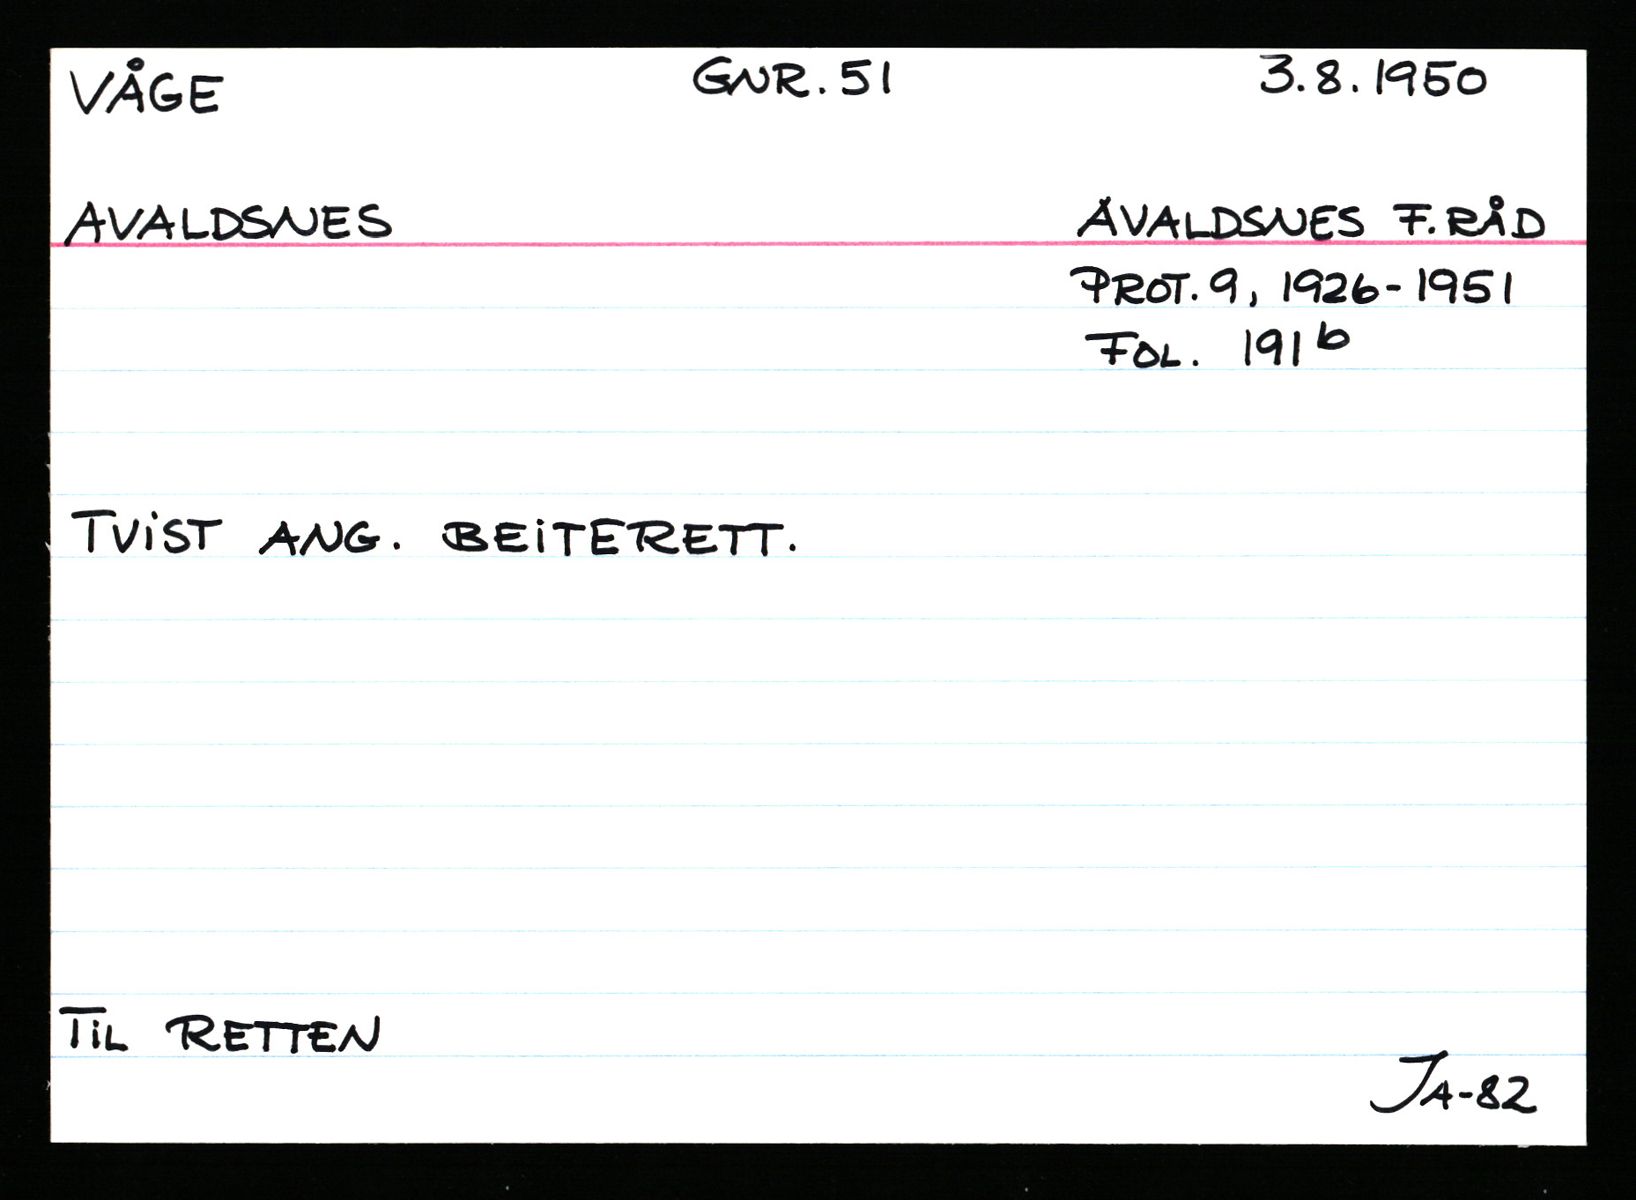 VÅGE GNR. 51 3.8.1950
AVALDSNES AVALDSNES F.RÅD
PROT. 9, 1926-1951
FOL. 191 b
TViST ANG. BEiTERETT.
TiL RETTEN
JA-82